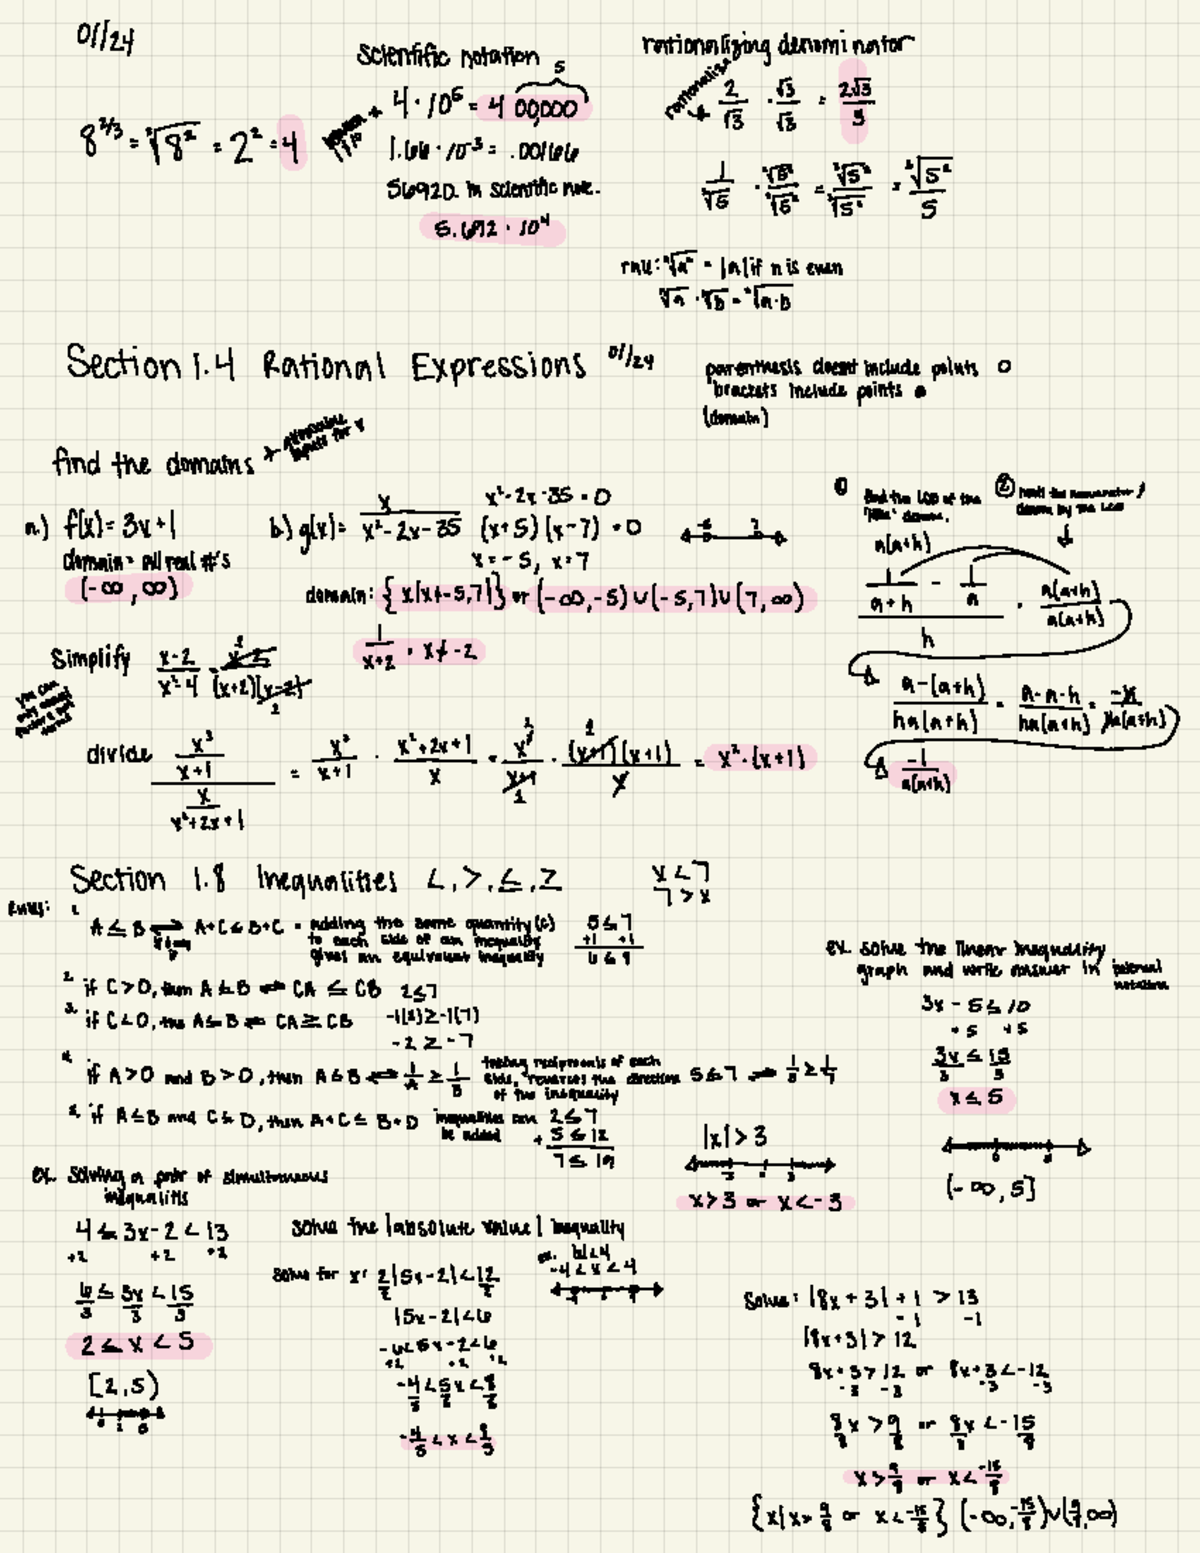 01/24
8^{2/3} = ∛8² = 2² = 4
scientific notation
5
4 · 10⁵ = 4 00,000
1.66 · 10⁻³ = .00166
56920. in scientific note.
5.692 · 10⁴
rationalizing denominator
rationalize
2/√3 · √3/√3 = 2√3/3
rule: ⁿ√aⁿ = |a| if n is even
ⁿ√a · ⁿ√b = ⁿ√a·b
Section 1.4 Rational Expressions 01/24
parenthesis doesnt include points ○
brackets include points ●
(domain)
find the domains
inputs for x
a.) f(x) = 3x+1
domain = all real #'s
(-∞, ∞)
b.) g(x) = x/(x²-2x-35)
x²-2x-35 = 0
(x+5)(x-7) = 0
x = -5, x = 7
domain: {x|x≠-5,7} or (-∞,-5)∪(-5,7)∪(7,∞)
① find the LCD of the
"little" denoms.
a(a+h)
② mult the numerator/
denom by the LCD
(1/(a+h) - 1/a)/h · a(a+h)/a(a+h)
(a-(a+h))/(ha(a+h)) = (a-a-h)/(ha(a+h)) = -h/(ha(a+h))
-1/(a(a+h))
Simplify (x-2)/(x²-4) = (x-2)/((x+2)(x-2))
1/(x+2) · x≠-2
divide (x³/(x+1))/(x/(x²+2x+1)) = x³/(x+1) · (x²+2x+1)/x = x³/(x+1) · (x+1)(x+1)/x = x²·(x+1)
Section 1.8 Inequalities <, >, ≤, ≥
x < 7
7 > x
Rules:
1. A ≤ B ⟺ A+C ≤ B+C = adding the same quantity (c)
to each side of an inequality
gives an equivalent inequality
5 ≤ 7
+1 +1
6 ≤ 8
2. if C>0, then A ≤ B ⟺ CA ≤ CB 2≤7
3. if C<0, then A≤B ⟺ CA ≥ CB -1(2) ≥ -1(7)
-2 ≥ -7
4. if A>0 and B>0, then A≤B ⟺ 1/A ≥ 1/B
taking reciprocals of each
side, reverses the direction
of the inequality
5≤7 ⟺ 1/5 ≥ 1/7
5. if A≤B and C≤D, then A+C ≤ B+D
inequalities can
be added
2≤7
+ 5 ≤ 12
7 ≤ 19
ex. solve the linear inequality
graph and write answer in interval
notation
3x - 5 ≤ 10
+5 +5
3x/3 ≤ 15/3
x ≤ 5
(-∞, 5]
|x| > 3
x>3 or x<-3
ex. Solving a pair of simultaneous
inequalitis
4 ≤ 3x-2 < 13
+2 +2 +2
6/3 ≤ 3x/3 < 15/3
2 ≤ x < 5
[2,5)
solve the |absolute value| inequality
ex. |x|<4
-4 < x < 4
solve for x: 2|5x-2|/2 < 12/2
|5x-2| < 6
-6<5x-2<6
+2 +2 +2
-4/5 < 5x/5 < 8/5
-4/5 < x < 8/5
Solve: |8x + 3| + 1 > 13
-1 -1
|8x+3| > 12
8x+3 > 12 or 8x+3 < -12
-3 -3 -3 -3
8x/8 > 9/8 or 8x/8 < -15/8
x > 9/8 or x < -15/8
{x|x> 9/8 or x < -15/8} (-∞, -15/8)∪(9/8, ∞)